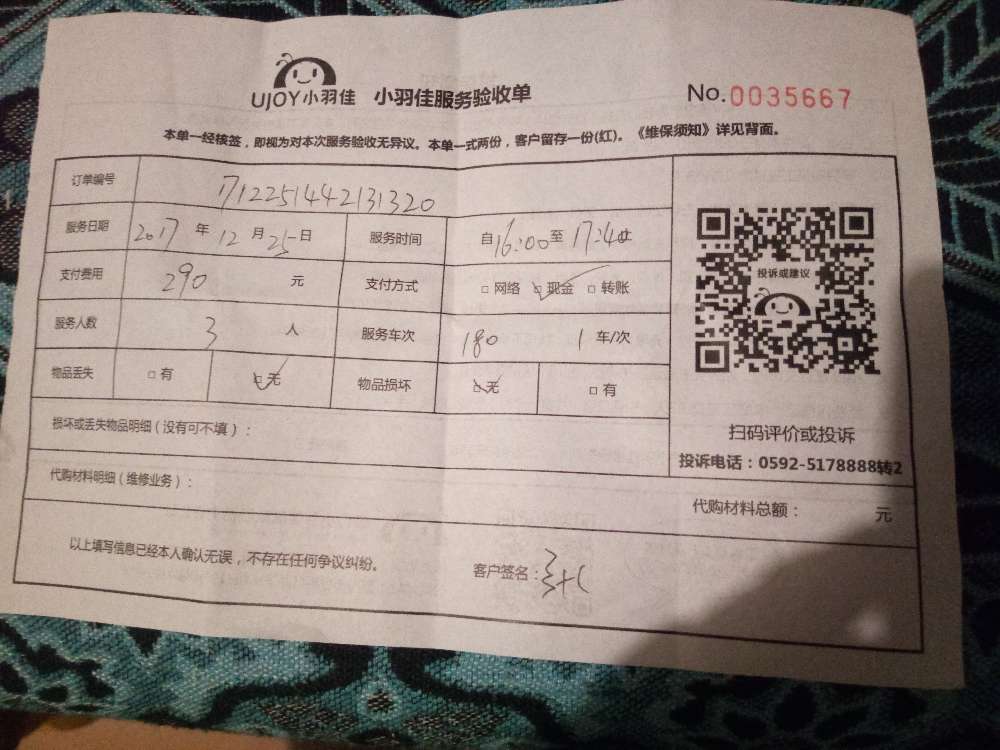 UJOY小羽佳 小羽佳服务验收单 No.0035667
本单一经核签，即视为对本次服务验收无异议。本单一式两份，客户留存一份(红)。《维保须知》详见背面。
订单编号 1712251442131320
服务日期 2017 年 12 月 25 日 服务时间 自 16:00 至 17:40
支付费用 290 元 支付方式 □ 网络 □ 现金 □ 转账
服务人数 3 人 服务车次 180 1 车/次
物品丢失 □ 有 □ 无 物品损坏 □ 无 □ 有
投诉或建议
扫码评价或投诉
投诉电话：0592-5178888转2
损坏或丢失物品明细（没有可不填）：
代购材料明细（维修业务）：
代购材料总额： 元
以上填写信息已经本人确认无误，不存在任何争议纠纷。
客户签名：